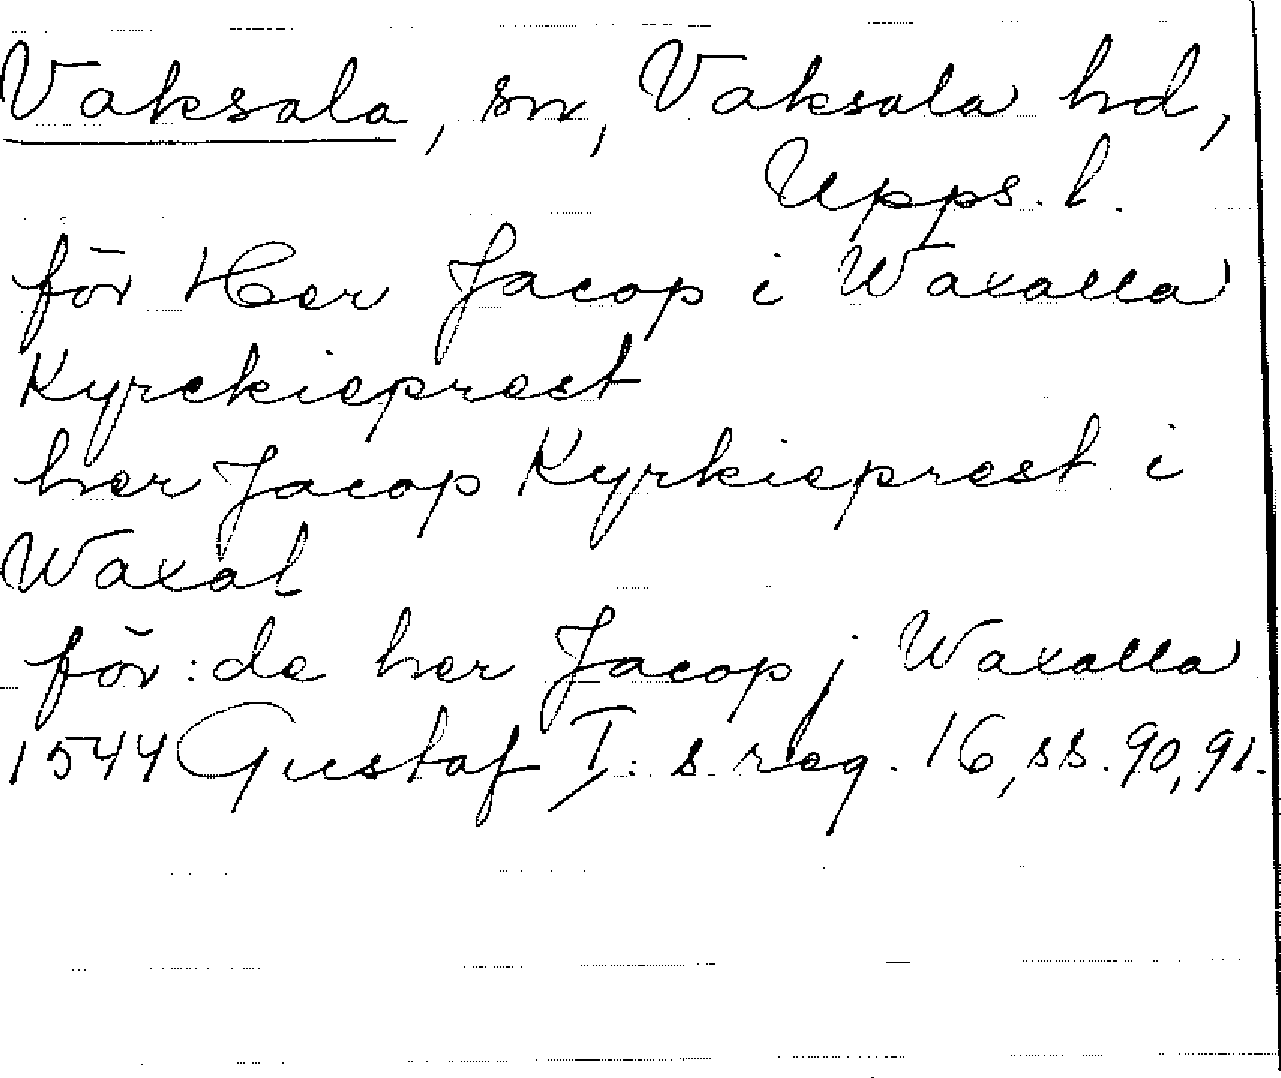 Vaksala, sn, Vaksala hd,
Upps. l.
för Her Jacop i Waxalla
Kyrckieprest
her Jacop Kyrkieprest i
Waxal
för: de her Jacop j Waxalla
1544 Gustaf I: s reg. 16, ss. 90, 91.